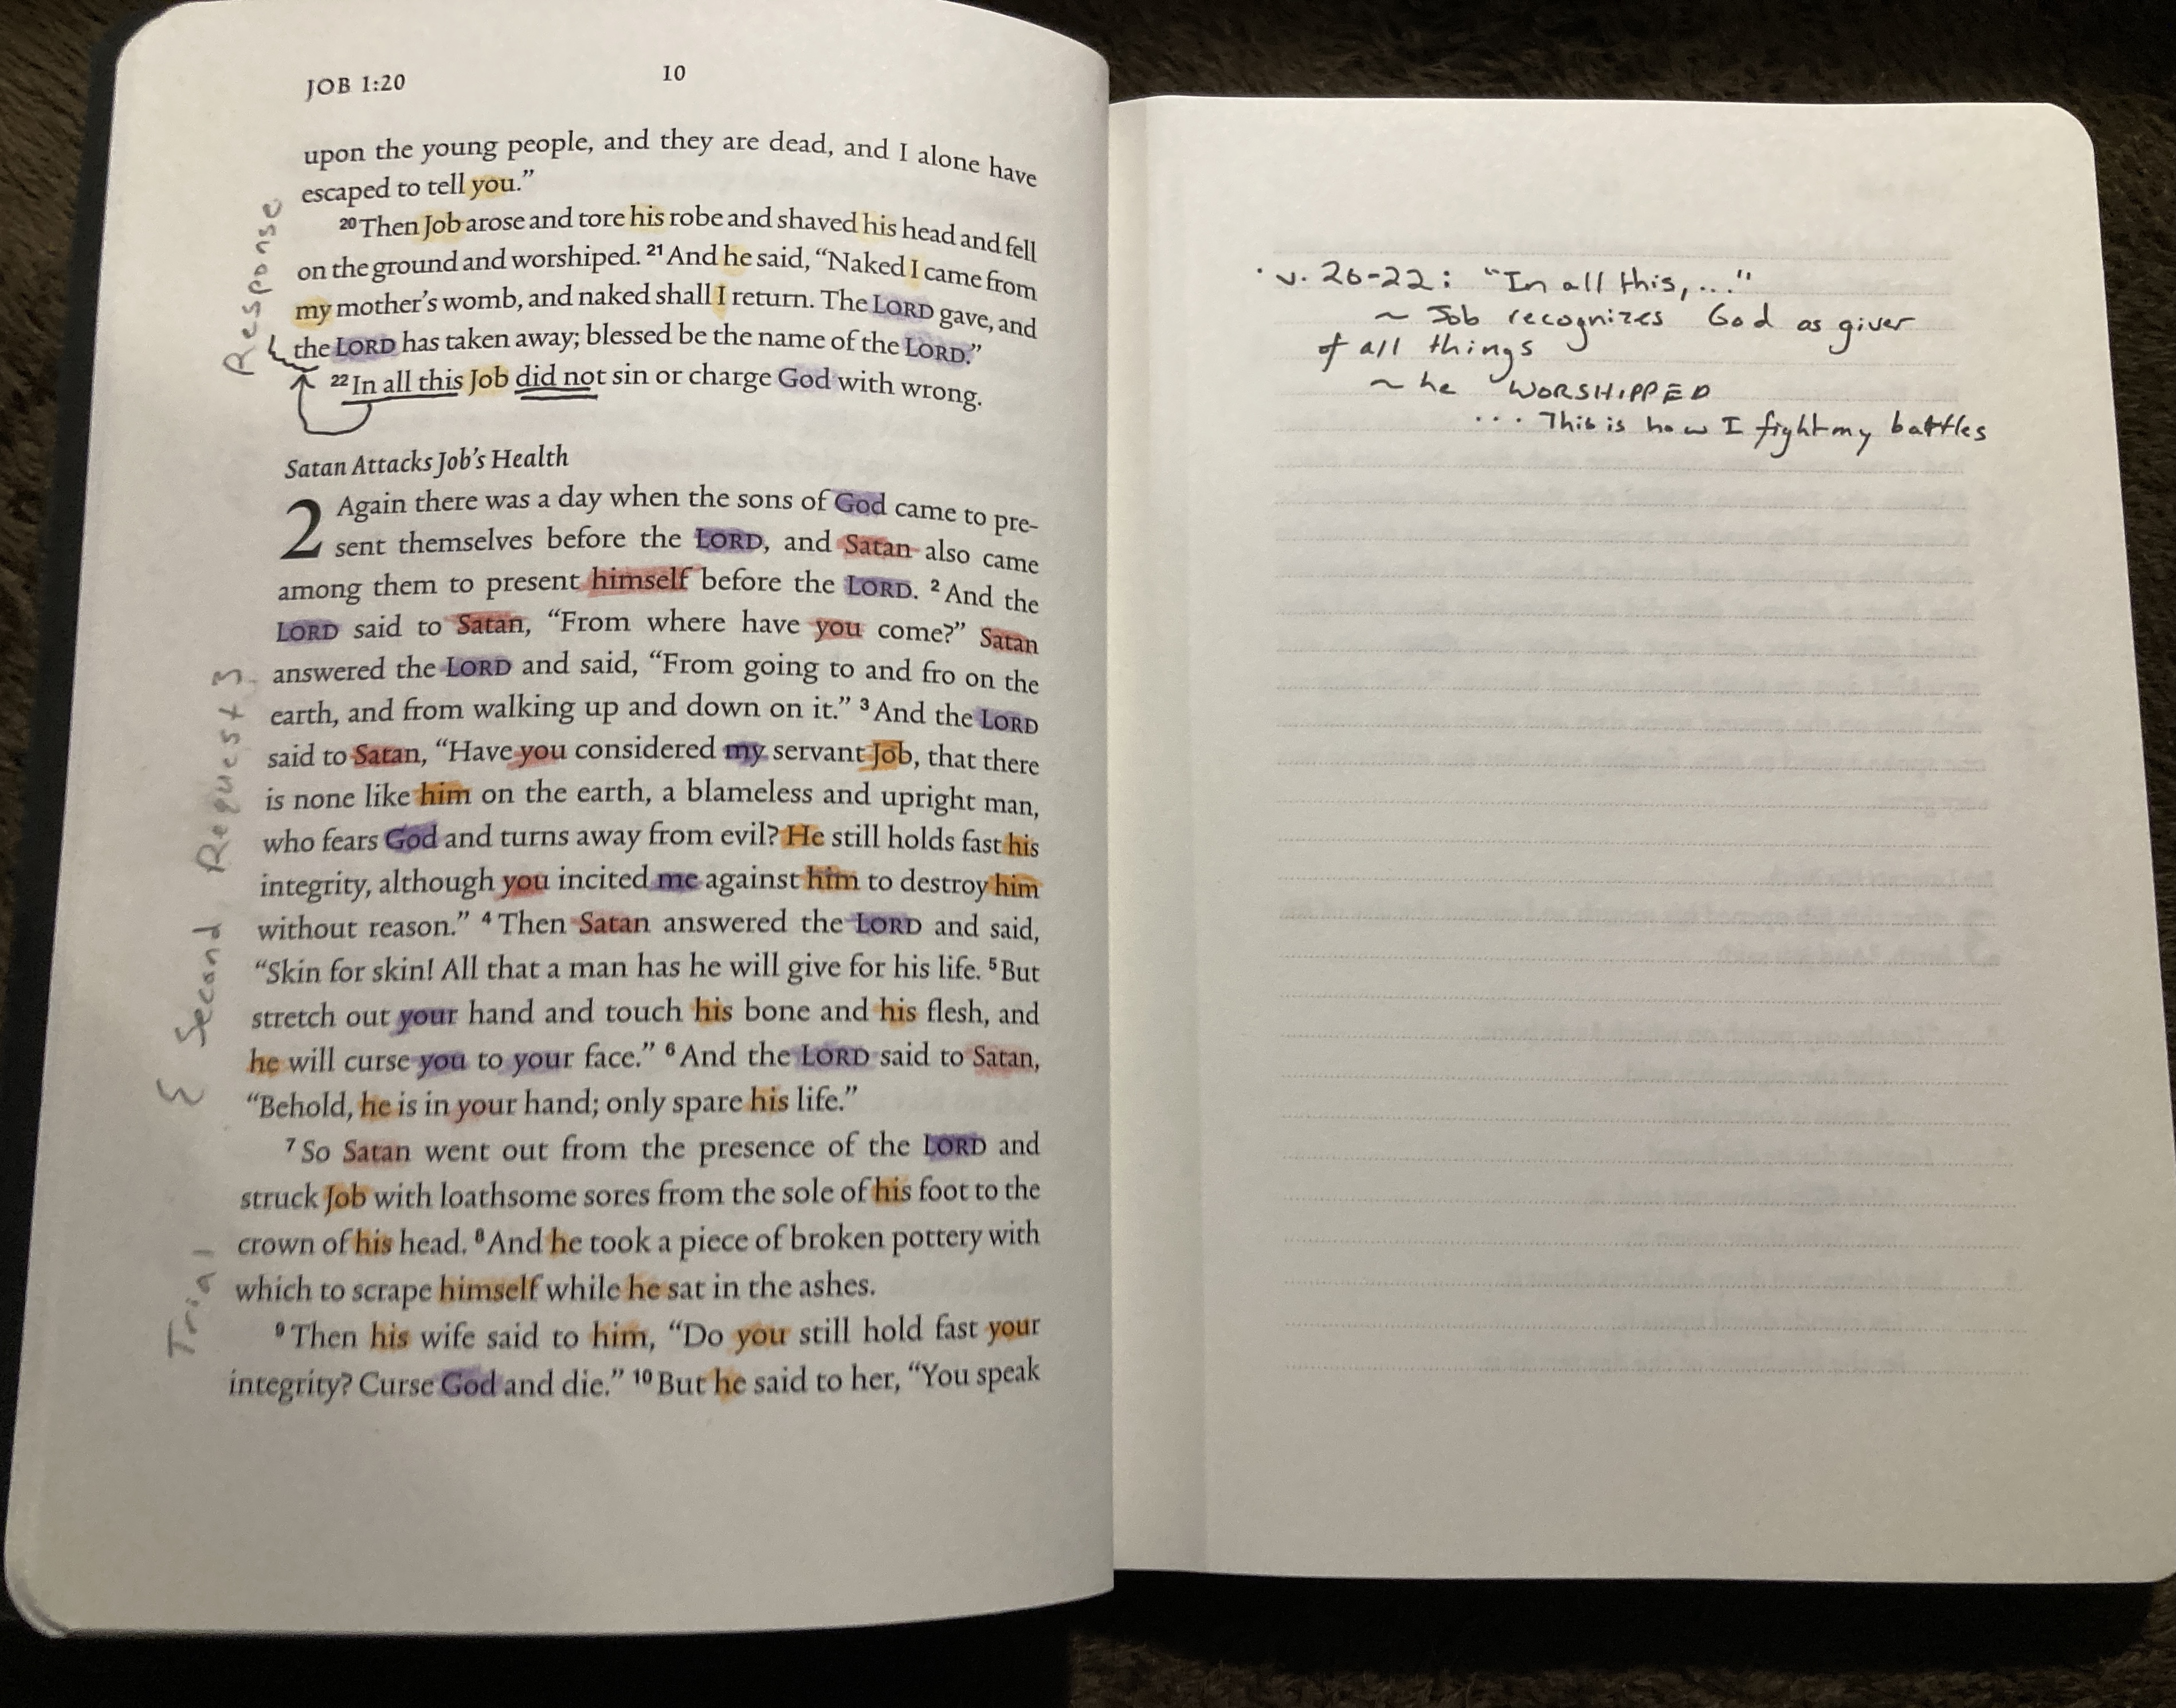 JOB 1:20
10
upon the young people, and they are dead, and I alone have
escaped to tell you.”
20 Then Job arose and tore his robe and shaved his head and fell
on the ground and worshiped. 21 And he said, “Naked I came from
my mother’s womb, and naked shall I return. The LORD gave, and
the LORD has taken away; blessed be the name of the LORD.”
22 In all this Job did not sin or charge God with wrong.
Response
Satan Attacks Job’s Health
2 Again there was a day when the sons of God came to pre-
sent themselves before the LORD, and Satan also came
among them to present himself before the LORD. 2 And the
LORD said to Satan, “From where have you come?” Satan
answered the LORD and said, “From going to and fro on the
earth, and from walking up and down on it.” 3 And the LORD
said to Satan, “Have you considered my servant Job, that there
is none like him on the earth, a blameless and upright man,
who fears God and turns away from evil? He still holds fast his
integrity, although you incited me against him to destroy him
without reason.” 4 Then Satan answered the LORD and said,
“Skin for skin! All that a man has he will give for his life. 5 But
stretch out your hand and touch his bone and his flesh, and
he will curse you to your face.” 6 And the LORD said to Satan,
“Behold, he is in your hand; only spare his life.”
Second Request
7 So Satan went out from the presence of the LORD and
struck Job with loathsome sores from the sole of his foot to the
crown of his head. 8 And he took a piece of broken pottery with
which to scrape himself while he sat in the ashes.
Trial
9 Then his wife said to him, “Do you still hold fast your
integrity? Curse God and die.” 10 But he said to her, “You speak
· v. 20-22: "In all this, ..."
~ Job recognizes God as giver
of all things
~ he WORSHIPPED
... This is how I fight my battles